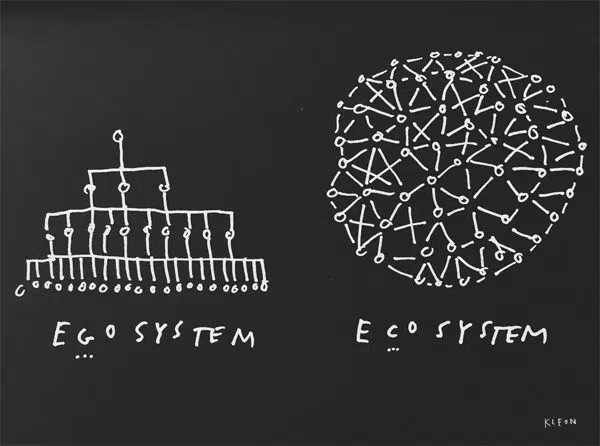 EGO SYSTEM
ECO SYSTEM
KLEON